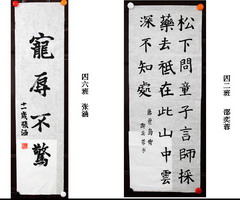 寵辱不驚
十一歲張涵
四六班 张涵
松下問童子言師採
藥去祗在此山中雲
深不知處
四二班 邵奕蓉